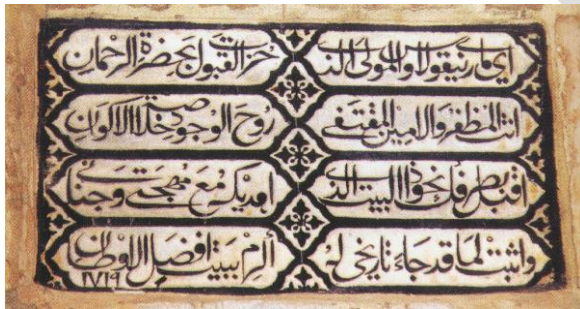 والمولى الذي حزت القبول بحضرة الرحمان
انت المظفر والامين المقتفى روح الوجود خلاصة الاكوان
نحو ذا البيت الذي افديك مع مهجتي وجناني
واثبت لما قد جاء تاريخي له ألزم ببيت افضل الاوطان
١٧١٩